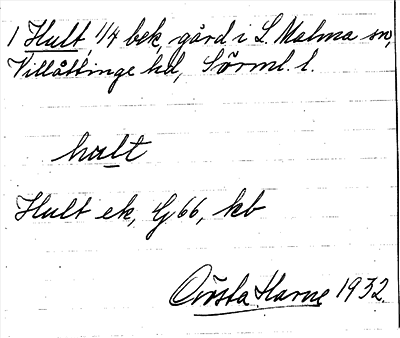 1 Hult, 1/4 bek, gård i L. Malma sn,
Villåttinge hd, Sörml. l.
hult
Hult ek, G 66, kb
Harne 1932.